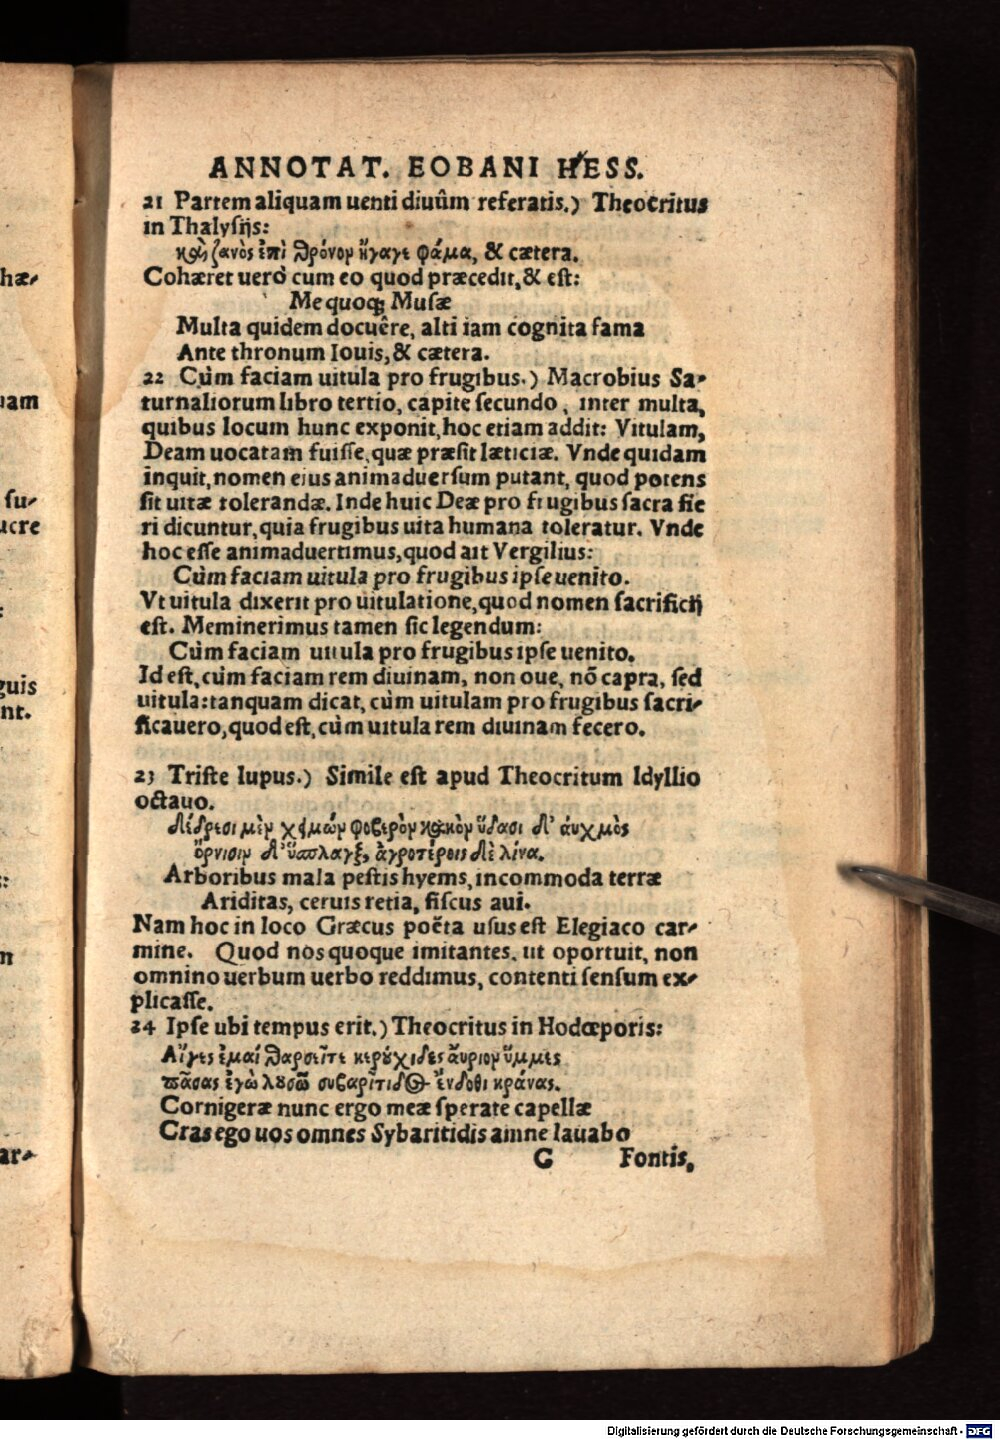 ANNOTAT. EOBANI HESS.
21 Partem aliquam uenti diuûm referatis.) Theocritus
in Thalysijs:
καὶ ζανὸς ἐπὶ θρόνον ἤγαγε φάμα, & cætera.
Cohæret uerò cum eo quod præcedit, & est:
Me quoq; Musæ
Multa quidem docuêre, alti iam cognita fama
Ante thronum Iouis, & cætera.
22 Cùm faciam uitula pro frugibus.) Macrobius Sa-
turnaliorum libro tertio, capite secundo, inter multa,
quibus locum hunc exponit, hoc etiam addit: Vitulam,
Deam uocatam fuisse, quæ præsit læticiæ. Vnde quidam
inquit, nomen eius animaduersum putant, quod potens
sit uitæ tolerandæ. Inde huic Deæ pro frugibus sacra fie
ri dicuntur, quia frugibus uita humana toleratur. Vnde
hoc esse animaduertimus, quod ait Vergilius:
Cùm faciam uitula pro frugibus ipse uenito.
Vt uitula dixerit pro uitulatione, quod nomen sacrificij
est. Meminerimus tamen sic legendum:
Cùm faciam uitula pro frugibus ipse uenito.
Id est, cùm faciam rem diuinam, non oue, nõ capra, sed
uitula: tanquam dicat, cùm uitulam pro frugibus sacri-
ficauero, quod est, cùm uitula rem diuinam fecero.
23 Triste lupus.) Simile est apud Theocritum Idyllio
octauo.
Δένδρεσι μὲν χειμὼν φοβερὸν κακὸν ὕδασι δ' ἀυχμὸς
ὄρνισιν δ' ὕσπλαγξ, ἀγροτέροις δὲ λίνα.
Arboribus mala pestis hyems, incommoda terræ
Ariditas, ceruis retia, fiscus aui.
Nam hoc in loco Græcus poëta usus est Elegiaco car-
mine. Quod nos quoque imitantes, ut oportuit, non
omnino uerbum uerbo reddimus, contenti sensum ex-
plicasse.
24 Ipse ubi tempus erit.) Theocritus in Hodœporis:
Αἶγες ἐμαὶ θαρσεῖτε κερούχιδες ἄυριον ὔμμες
πᾶσας ἐγὼ λουσῶ συβαρίτιδος ἔνδοθι κράνας.
Cornigeræ nunc ergo meæ sperate capellæ
Cras ego uos omnes Sybaritidis amne lauabo
G Fontis,
hæ-
uam
su-
ucre
:
guis
nt.
:
n
ar-
Digitalisierung gefördert durch die Deutsche Forschungsgemeinschaft - DFG